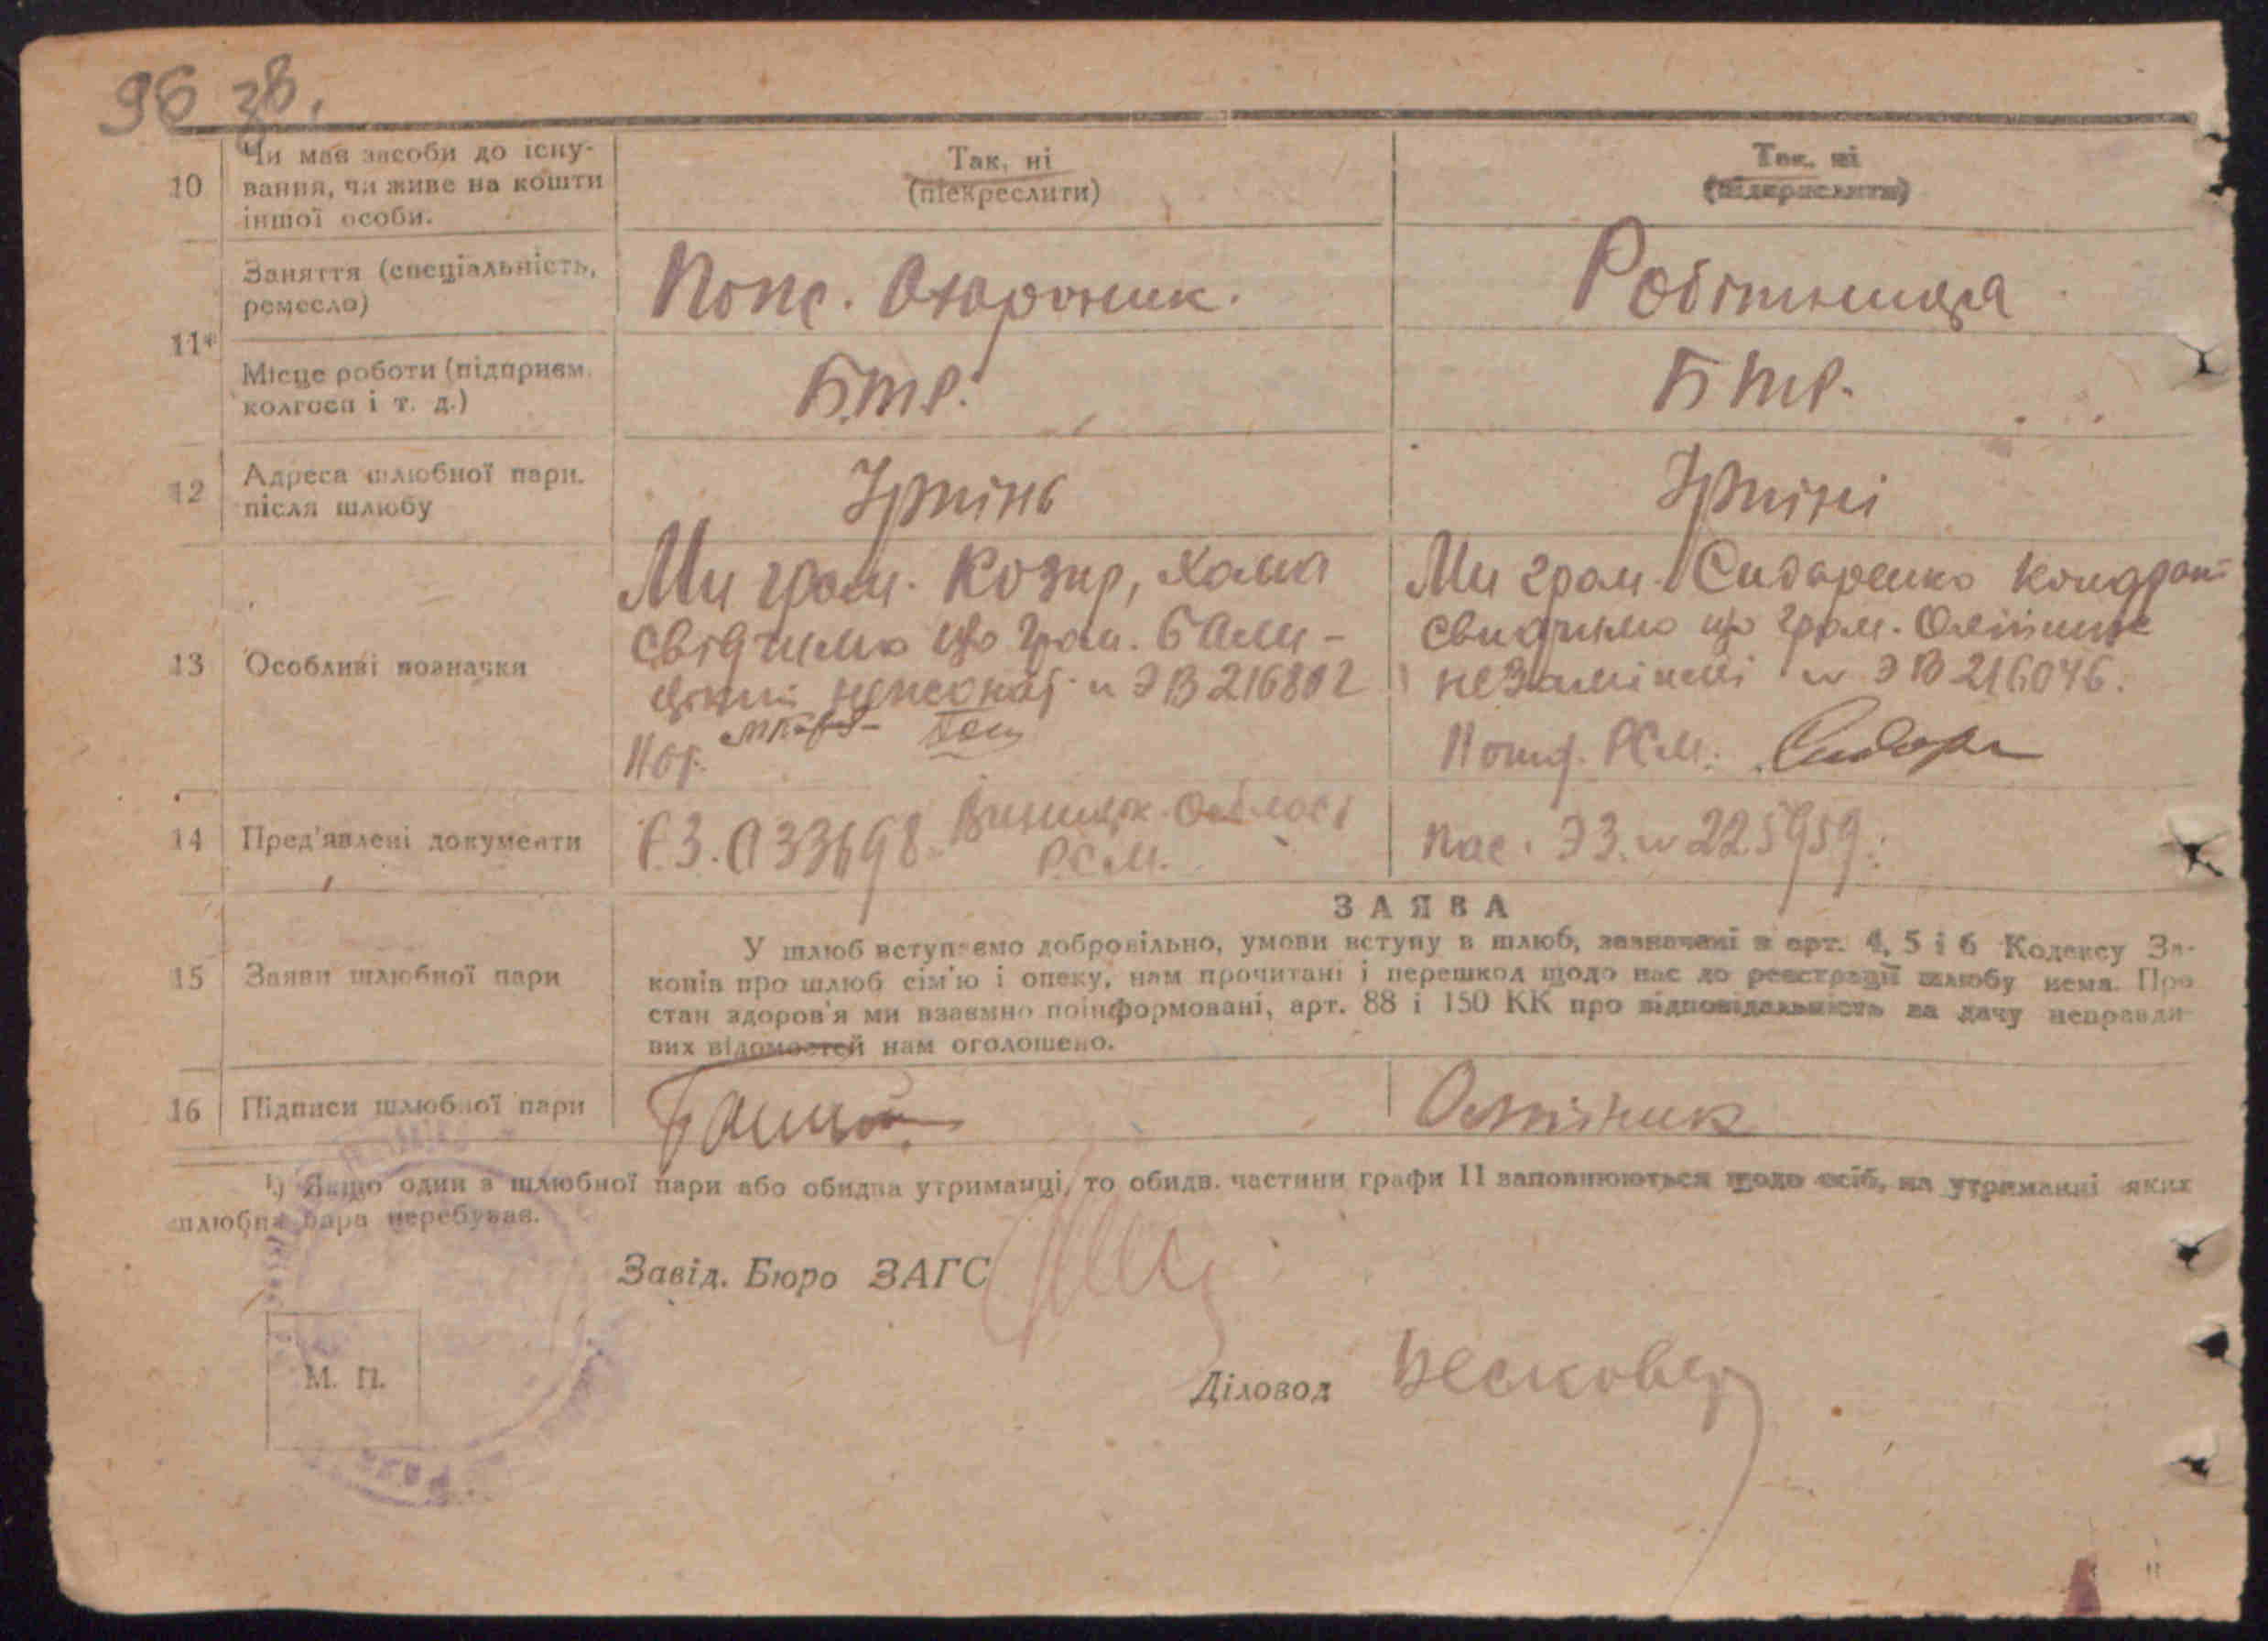 96 зв.
10
Чи має засоби до існу-
вання, чи живе на кошти
іншої особи.
Так, ні
(підкреслити)
Так, ні
(підкреслити)
11*
Заняття (спеціальність,
ремесло)
Охороник.
Робітниця
Місце роботи (підприєм.
колгосп і т. д.)
БТР.
БТР.
12
Адреса шлюбної пари.
після шлюбу
Ірпінь
Ірпіні
13
Особливі позначки
Ми гром. Козир, Хома
свідчимо що гром.
нежонат № ЭВ 216802
Ми гром. Сидоренко Кондрат
свидчимо що гром. Олійник
незаміжні № ЭВ 216046.
РСМ.
14
Пред'явлені документи
033698 Вінницьк. Області
РСМ.
Пас. ЭЗ. № 225959.
15
Заяви шлюбної пари
ЗАЯВА
У шлюб вступаємо добровільно, умови вступу в шлюб, зазначені в арт. 4, 5 і 6 Кодексу За-
конів про шлюб сім'ю і опеку, нам прочитані і перешкод щодо нас до реєстрації шлюбу нема. Про
стан здоров'я ми взаємно поінформовані, арт. 88 і 150 КК про відповідальність за дачу неправди-
вих відомостей нам оголошено.
16
Підписи шлюбної пари
Олійник
¹) Якщо один з шлюбної пари або обидва утриманці, то обидв. частини графи 11 заповнюються щодо осіб, на утриманні яких
шлюбна пара перебуває.
Завід. Бюро ЗАГС
М. П.
Діловод